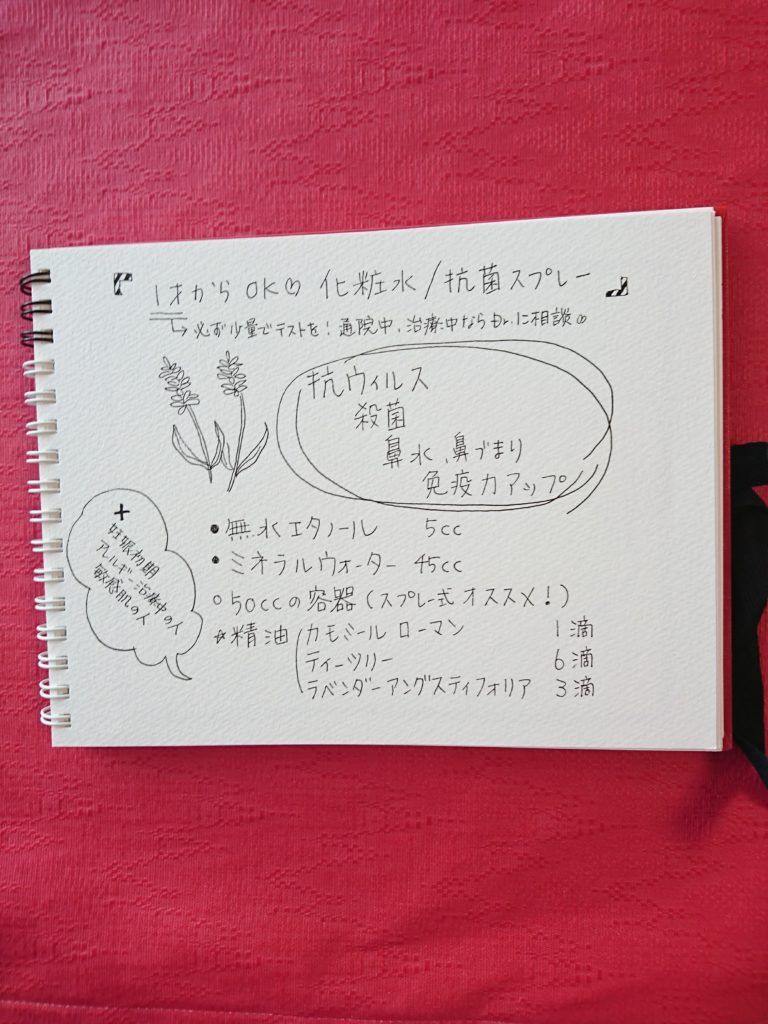 『1才からOK♡ 化粧水/抗菌スプレー』
↳必ず少量でテストを!通院中、治療中ならDr.に相談☺
抗ウィルス
殺菌
鼻水、鼻づまり
免疫力アップ
+
妊娠初期
アレルギー治療中の人
敏感肌の人
●無水エタノール 5cc
●ミネラルウォーター 45cc
○50ccの容器(スプレー式オススメ!)
☆精油 カモミールローマン 1滴
ティーツリー 6滴
ラベンダーアングスティフォリア 3滴